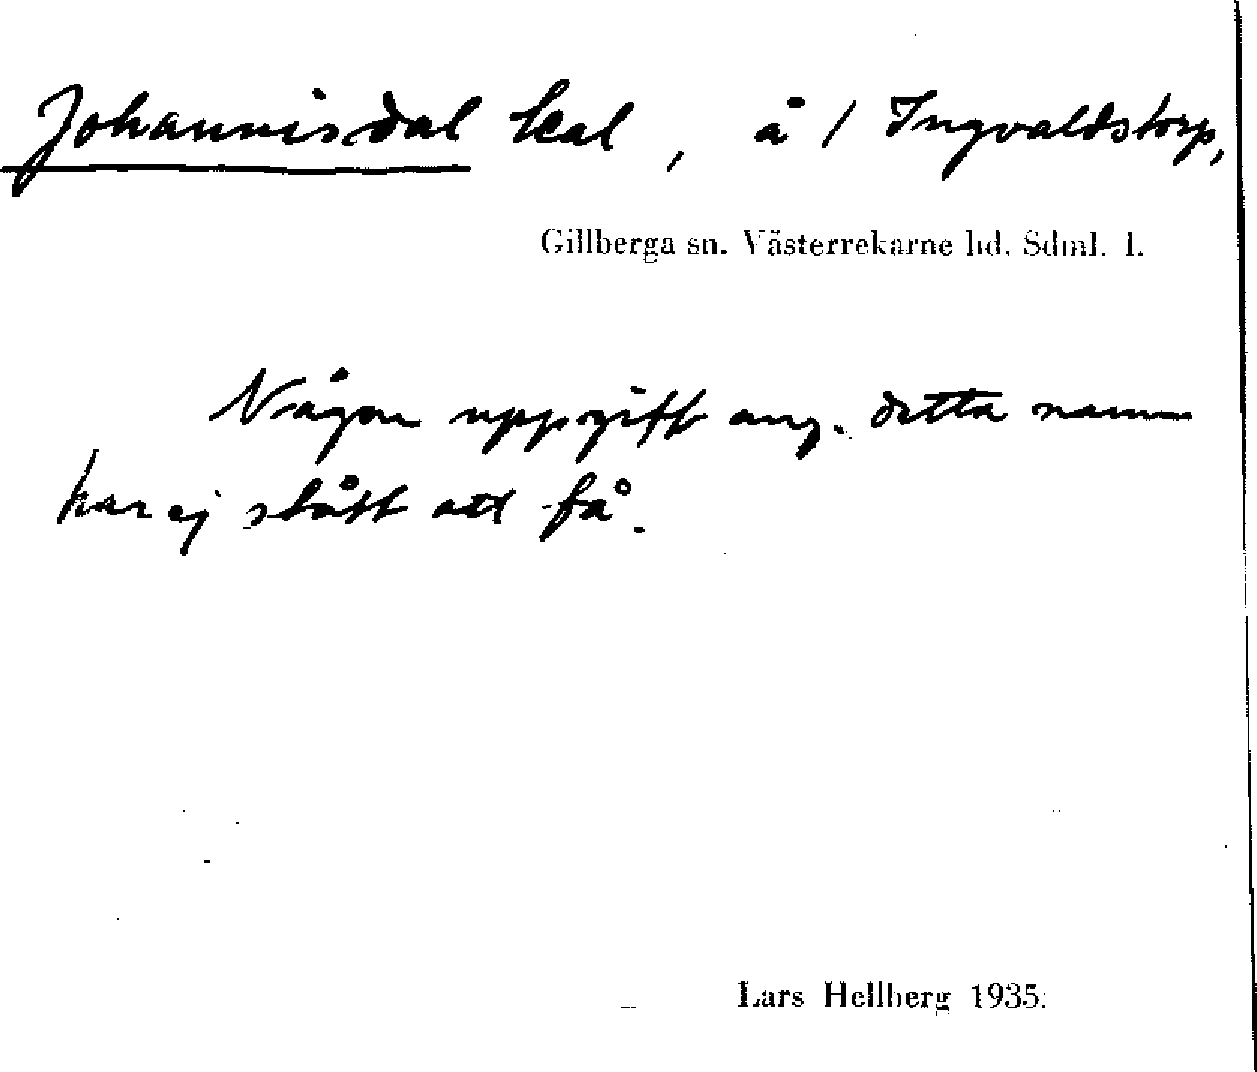 Johannisdal kal, å / Ingvaldstorp,
Gillberga sn. Västerrekarne hd. Sdml. l.
Någon uppgift ang. detta namn
har ej stått att få.
Lars Hellberg 1935.